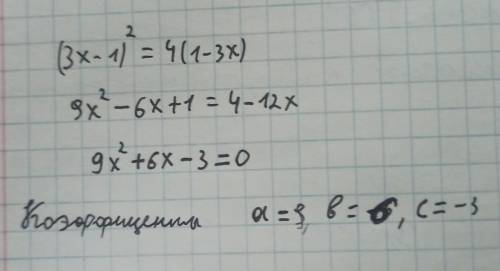 (3x-1)² = 4(1-3x)
9x² - 6x + 1 = 4 - 12x
9x² + 6x - 3 = 0
Коэффициенты a = 9, b = 6, c = -3